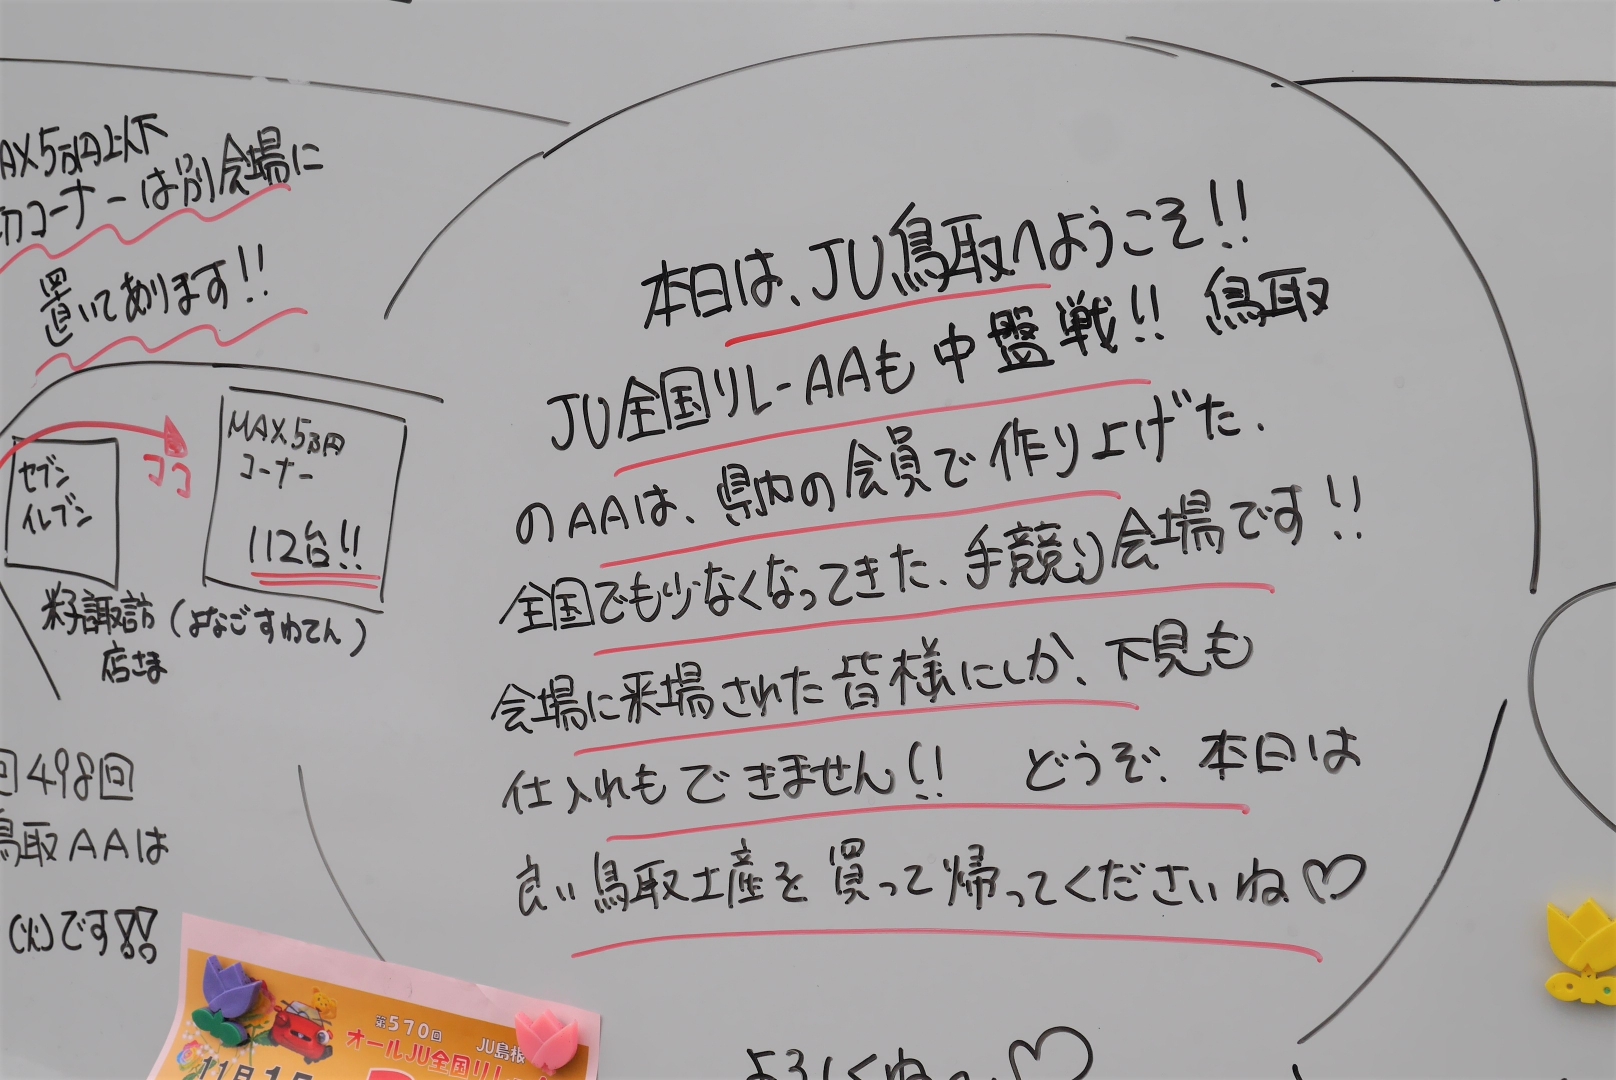 AX5万円以下
コーナーは別会場に
置いてあります!!
MAX5万円
コーナー
112台!!
ココ
セブン
イレブン
米子諏訪
店さま
(よなごすわてん)
回498回
鳥取AAは
(火)です!!
本日は、JU鳥取へようこそ!!
JU全国リレーAAも中盤戦!! 鳥取
のAAは、県内の会員で作り上げた、
全国でも少なくなってきた、手競り会場です!!
会場に来場された皆様にしか、下見も
仕入れもできません!! どうぞ、本日は
良い鳥取土産を買って帰ってくださいね♡
第570回
JU島根
オールJU全国リレー
11月15